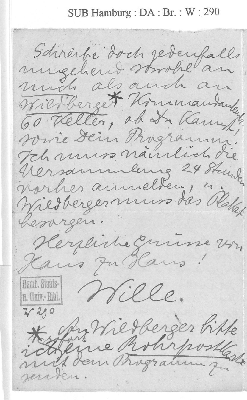 SUB Hamburg : DA : Br. : W : 290
Schreibe doch jedenfalls
umgehend sowohl an
mich als auch an
Wildberger * Kommandanten
60 Keller, ob Du kannst,
sowie Dein Programm.
Ich muss nämlich die
Versammlung 24 Stunden
vorher anmelden, u.
Wildberger muss das Plakat
besorgen.
Herzliche Grüsse von
Haus zu Haus!
Wille.
Hamb. Staats-
u. Univ.-Bibl.
W 290
* An Wildberger bitte
sofort
ich eine Rohrpostkarte
mit dem Programm zu
senden.